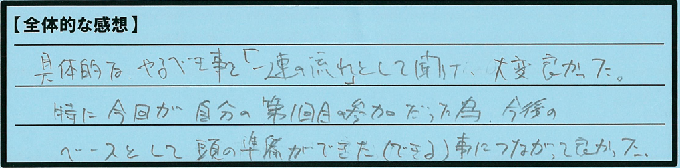 【全体的な感想】
具体的なやるべき事を「一連の流れ」として聞けた、大変良かった。
特に今回が自分の第1回目の参加だった為、今後の
ベースとして頭の準備ができた(できる)事につながって良かった。